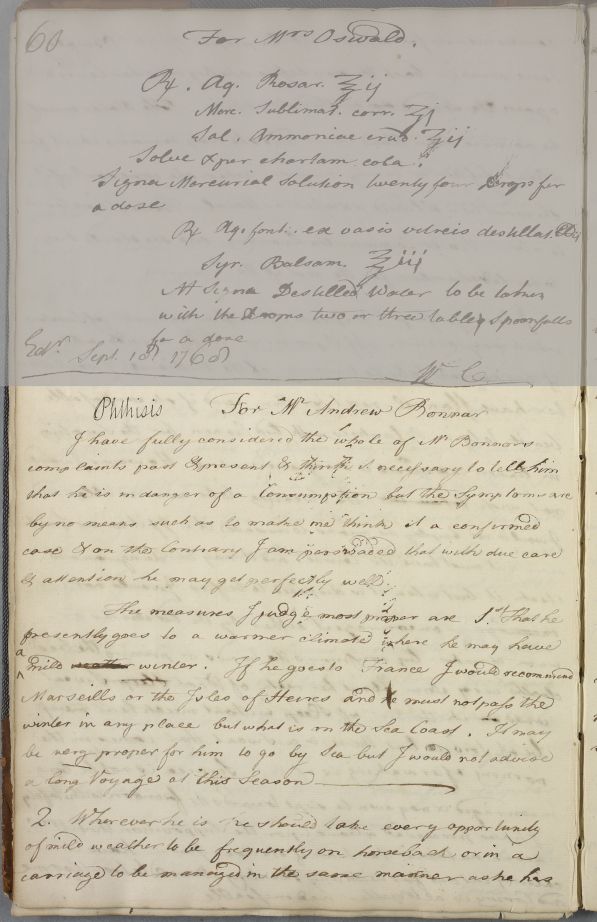 60
For Mrs Oswald.
℞. Aq. Rosar. ℥ij
Merc. Sublimat. corr. ʒj
Sal. Ammoniac crud. ʒij
Solve & per chartam cola.
Signa Mercurial Solution twenty four Drops for
a dose
℞ Aq. font. ex vasis vitreis destillat.
Syr. Balsam. ℥iij
M Signa Destilled Water to be taken
with the Drops two or three table Spoonfulls
for a dose
Edr. Sept. 18 1768
W C
Phthisis For Mr Andrew Bonnar
I have fully considered the whole of Mr Bonnars
complaints past & present & think it necessary to tell him
that he is in danger of a Consumption but the Symptoms are
by no means such as to make me think it a confirmed
case & on the Contrary I am perswaded that with due care
& attention he may get perfectly well.
The measures I judge most proper are 1st That he
presently goes to a warmer climate where he may have
a mild winter. If he goes to France I would recommend
Marseills or the Isles of Heires and he must not pass the
winter in any place but what is on the Sea Coast. It may
be very proper for him to go by Sea but I would not advise
a long Voyage at this Season
2. Wherever he is he should take every opportunity
of mild weather to be frequently on horseback or in a
carriage to be managed in the same manner as he has